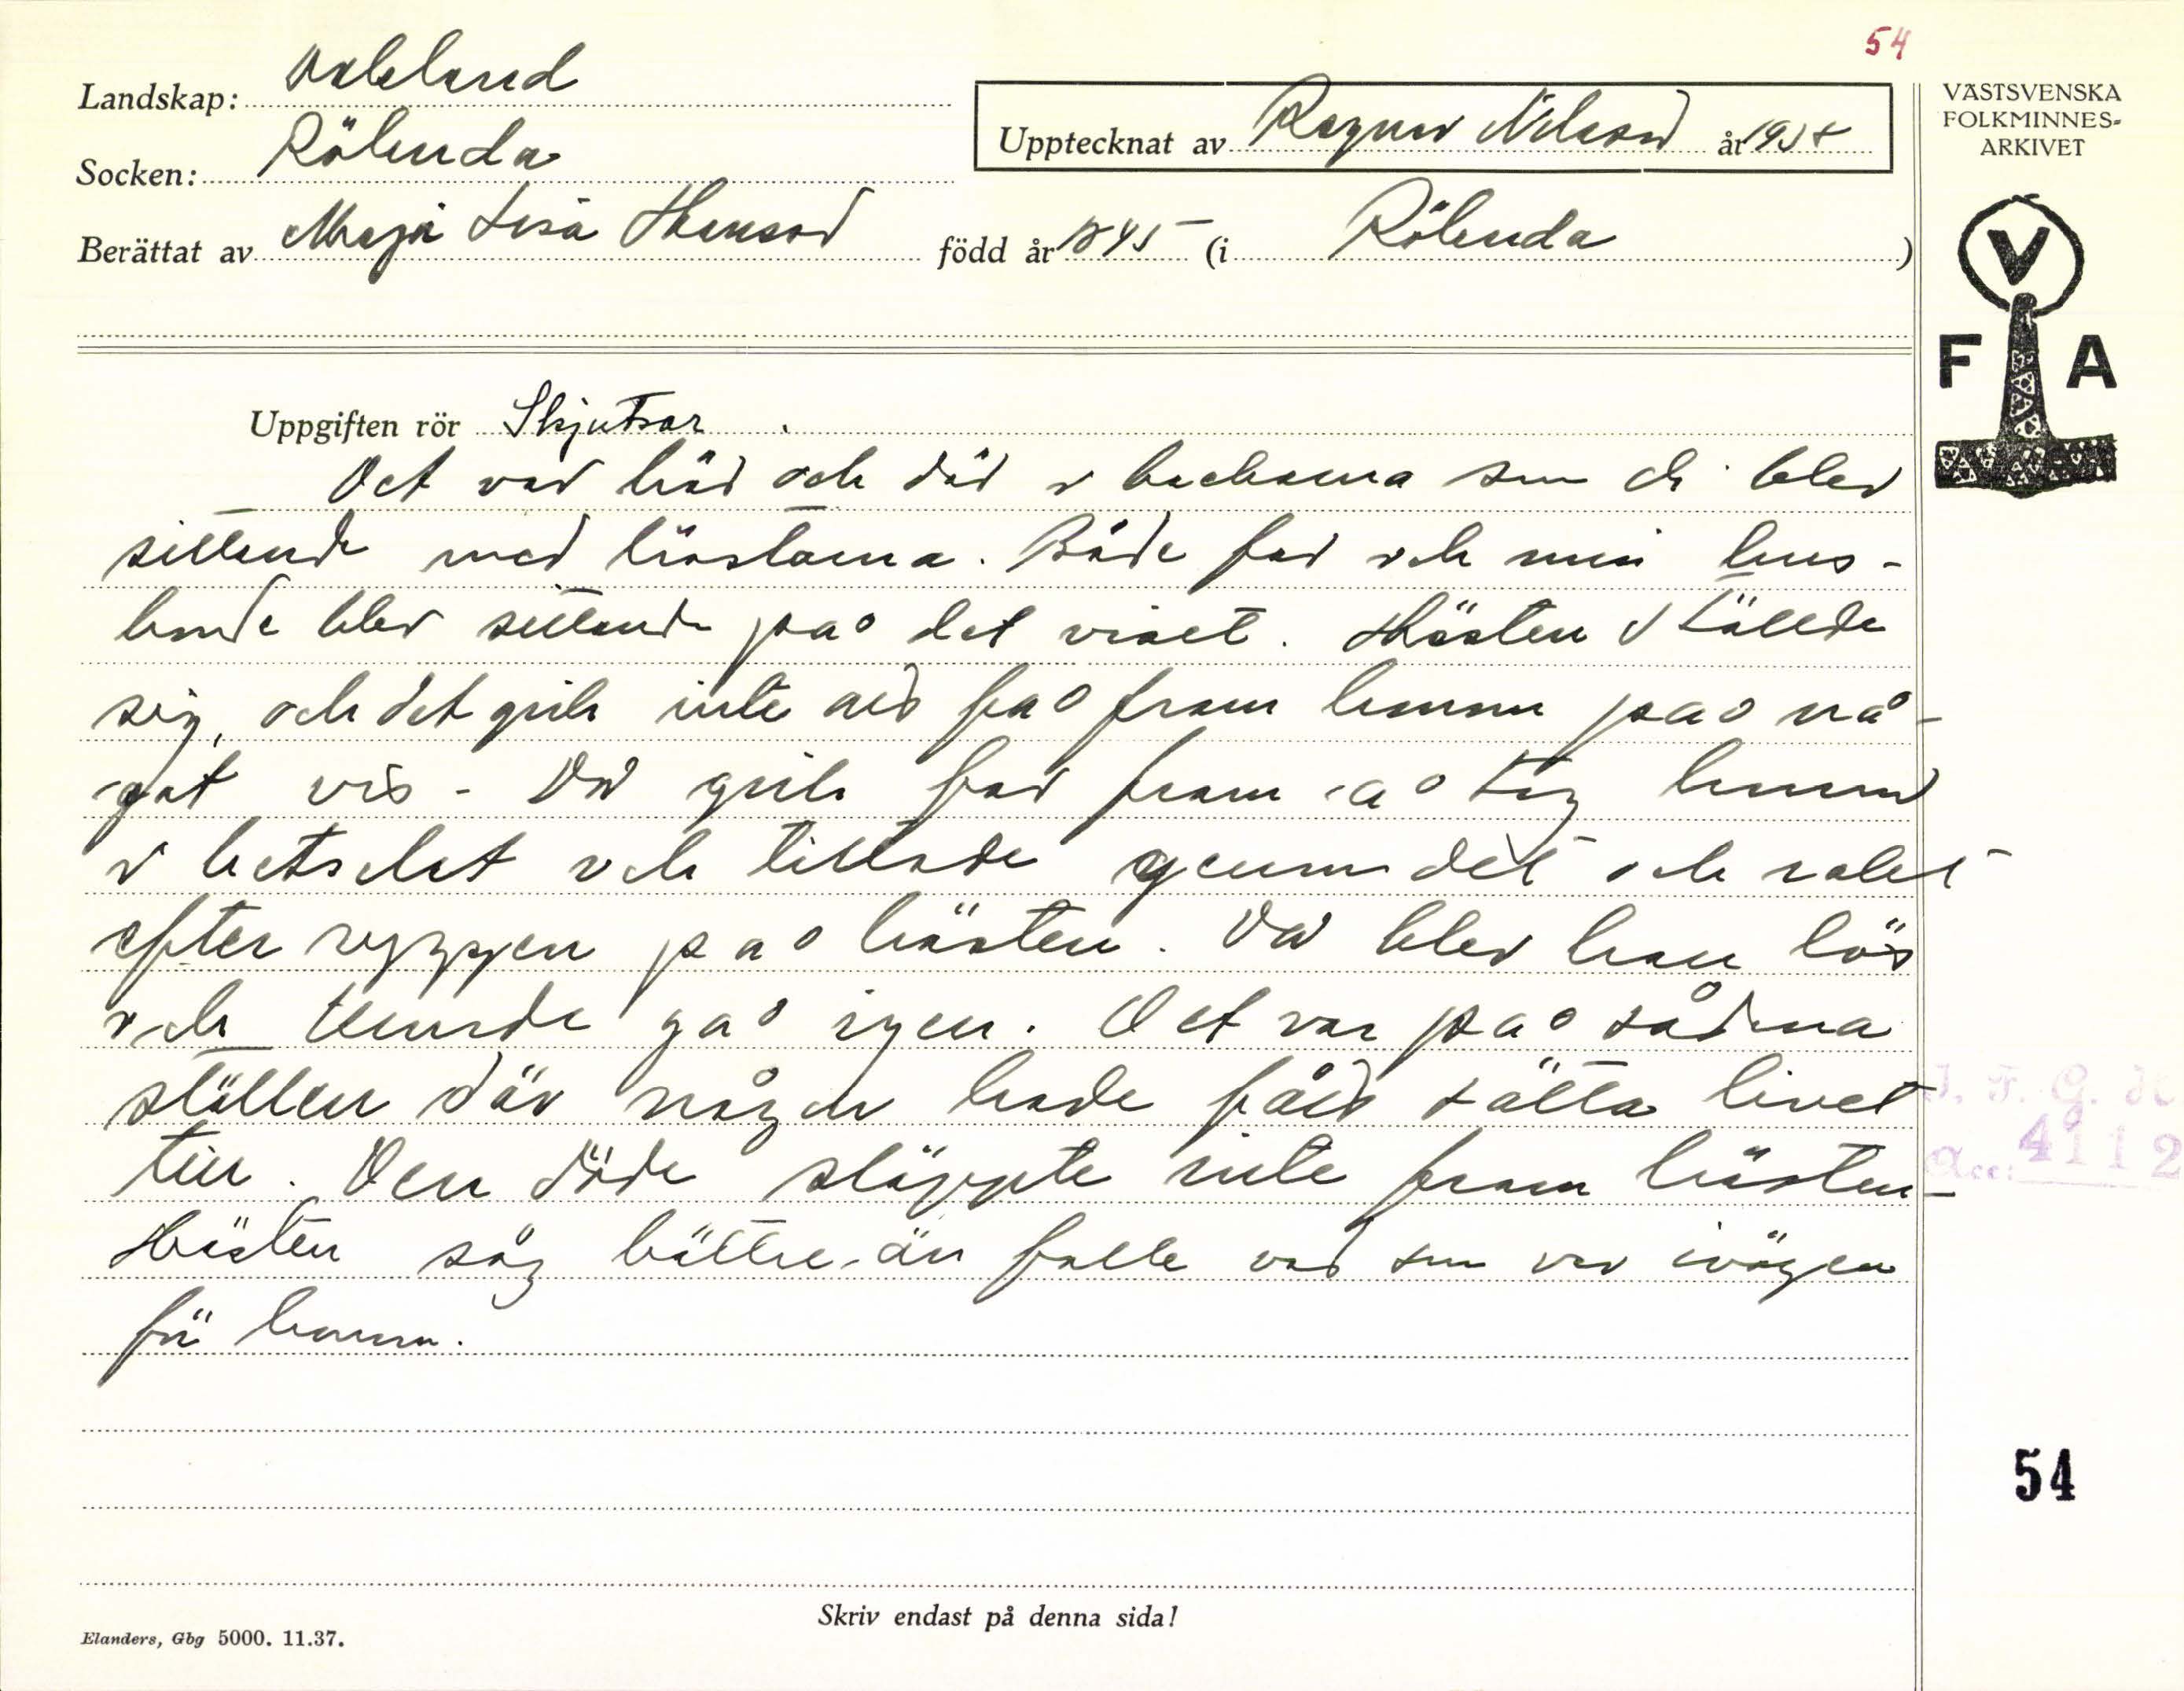 54
Landskap: Dalsland
Socken: Rölanda
Upptecknat av Ragnar Nilsson år 1938
Berättat av Maja Lisa Hansson född år 1845 (i Rölanda )
VÄSTSVENSKA
FOLKMINNES-
ARKIVET
V
F A
Uppgiften rör Skjutsar.
Det var här och där i backarna som di blev
sittande med hästarna. Både far och min hus-
bonde blev sittande på det viset. Hästen ställde
sig, och det gick inte att få fram honom på nå-
got vis - Då gick far fram å tog honom
i betslet och tittade genom det och
efter ryggen på hästen. Då blev han lös
och kunde gå igen. Det var på sådana
ställen där någon hade fått sätta livet
till. Den döde släppte inte fram hästen -
Hästen såg bättre än folk vad som var ivägen
för honom.
I. F. G. H.
Acc: 4112
54
Skriv endast på denna sida!
Elanders, Gbg 5000. 11.37.